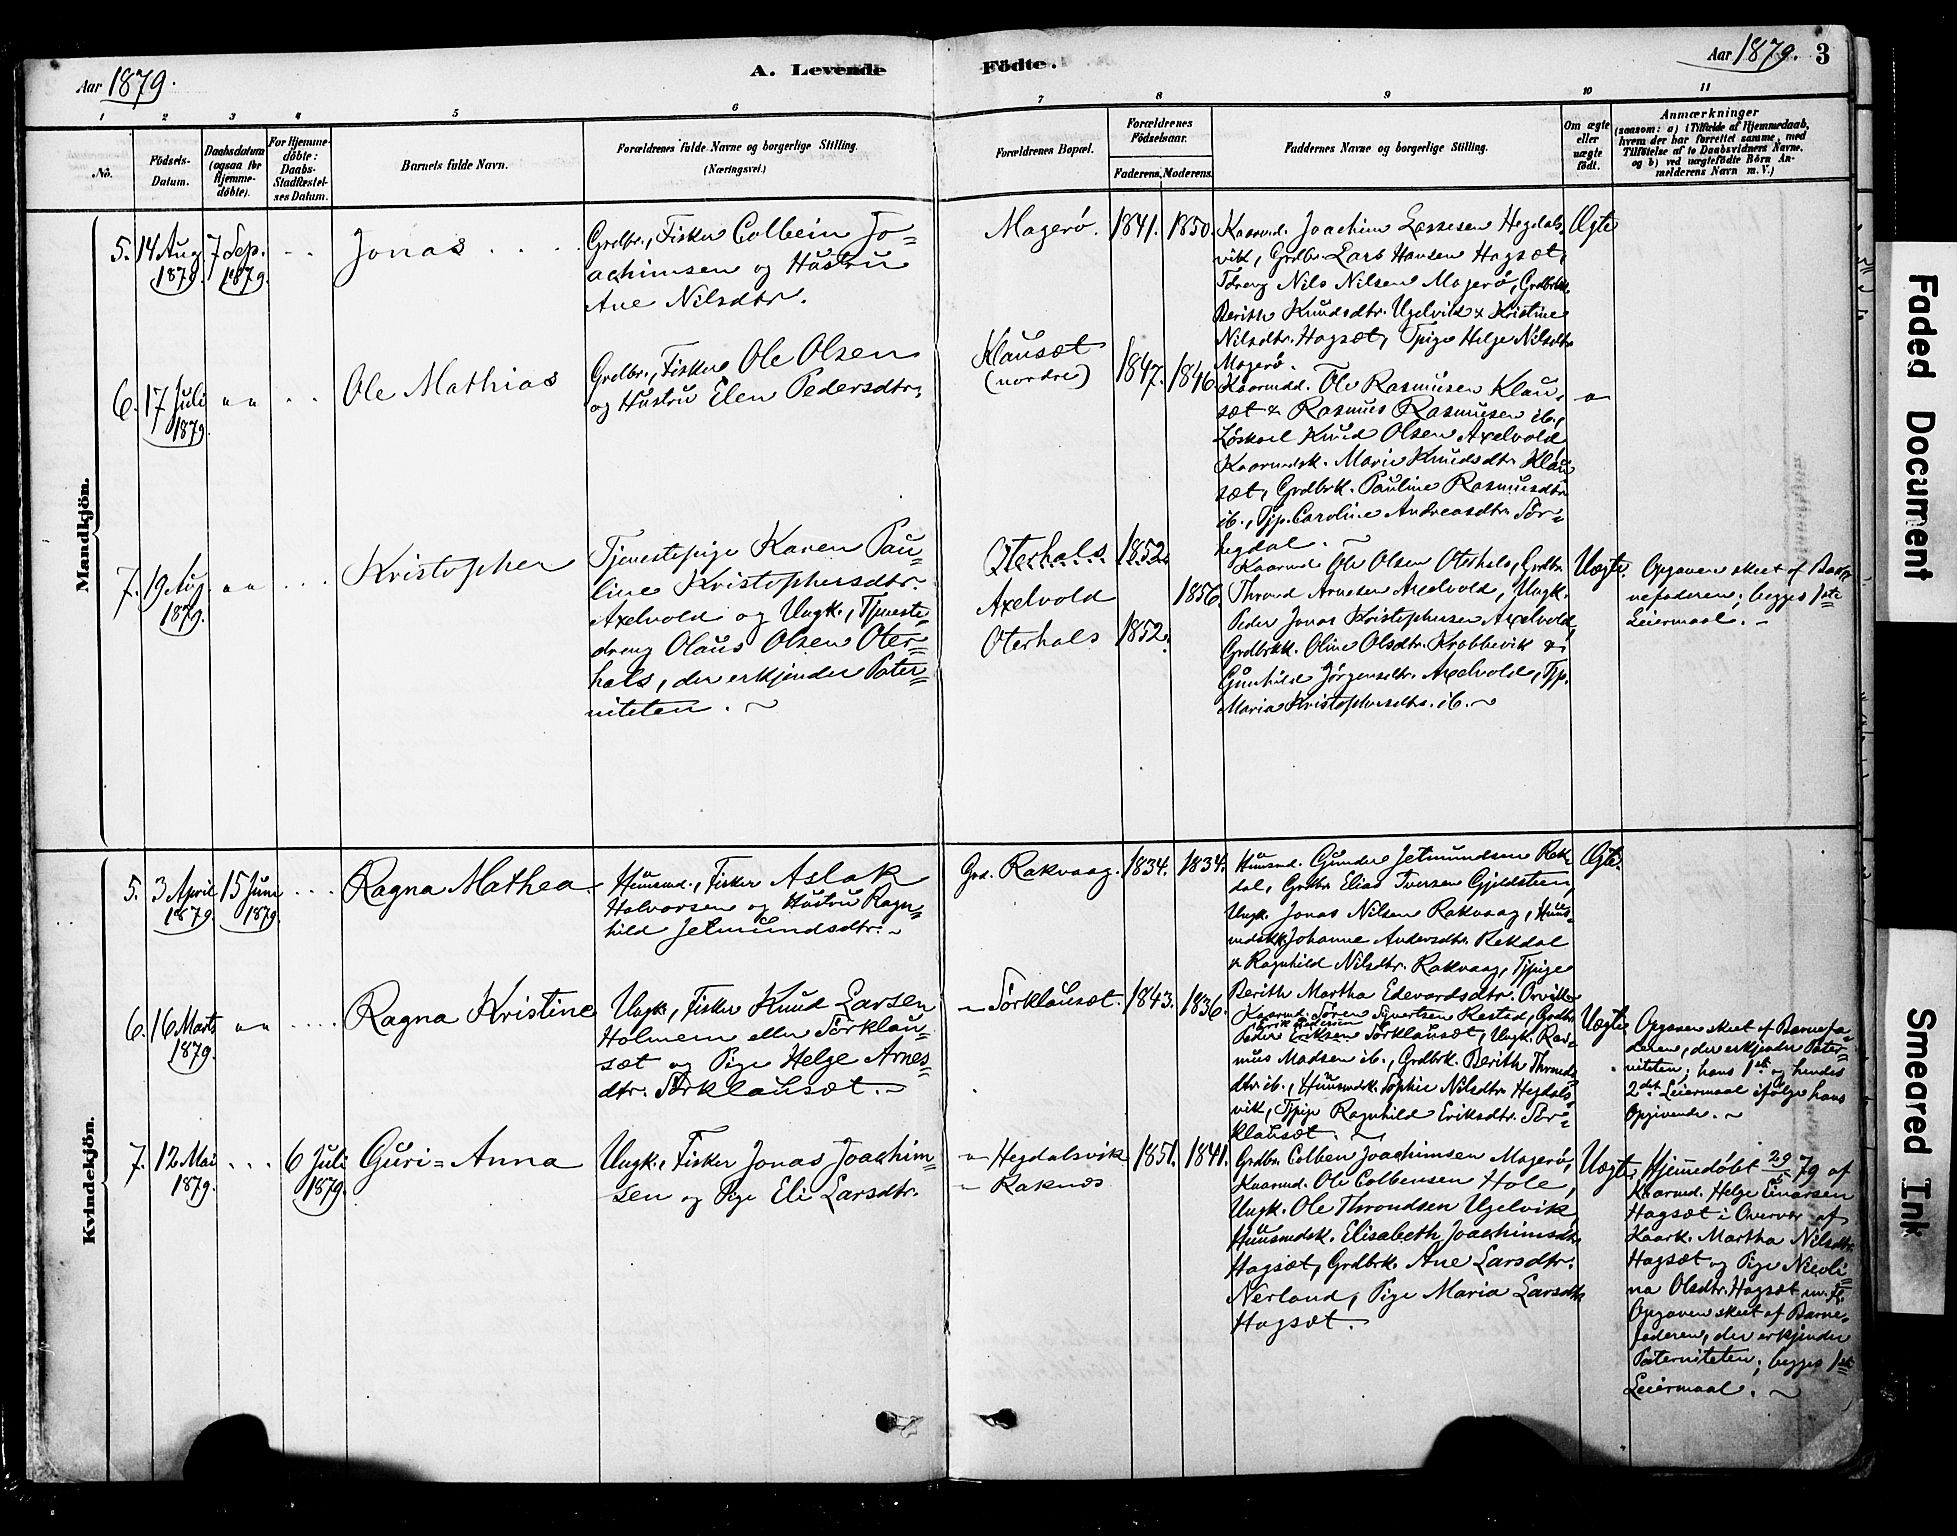 Aar 1879.
A. Levende Födte.
Aar 1879. 3
1 2 3 4 5 6 7 8 9 10 11
No.
Födsels-
Datum.
Daabsdatum
(ogsaa for
Hjemme-
döbte).
For Hjemme-
döbte:
Daabs-
Stadfæstel-
ses Datum.
Barnets fulde Navn.
Forældrenes fulde Navne og borgerlige Stilling.
(Næringsvei.)
Forældrenes Bopæl.
Forældrenes
Födselsaar.
Faderens. Moderens.
Faddernes Navne og borgerlige Stilling.
Om ægte
eller
uægte
födt.
Anmærkninger
(saasom: a) i Tilfælde af Hjemmedaab,
hvem der har forrettet samme, med
Tilföielse af to Daabsvidners Navne,
og b) ved uægtefödte Börn An-
melderens Navn m. V.)
Mandkjön.
5. 14 Aug
1879.
7 Sep.
1879.
Jonas
Grdbr., Fisker Colbein Jo=
achimsen og Hustru
Ane Nilsdtr.
Magerö.
1841. 1850.
Kaarmd. Joachim Lassesen Hegdals-
vik, Grdbr. Lars Hansen Hagsæt,
Tdreng Nils Nilsen Magerö, Grdbrk.
Berith Knudsdtr. Ugelvik & Kristine
Nilsdtr. Hagsæt, Tpige Helge Nilsdtr
Magerö.
Ægte
6. 17 Juli
1879.
" "
Ole Mathias
Grdbr., Fisker Ole Olsen
og Hustru Elen Pedersdtr.
Klausæt
(nordre)
1847. 1846.
Kaarmd. Ole Rasmusen Klau-
sæt & Rasmus Rasmusen ib.,
Löskarl Knud Olsen Axelvold
Kaarmdsk. Marie Knudsdtr. Klau
sæt, Grdbrk. Pauline Rasmusdtr
ib., Tjp. Caroline Andreasdtr. Sör=
hegdal.
"
7. 19 Aug
1879.
" "
Kristopher
Tjenestepige Karen Pau=
line Kristophersdtr.
Axelvold og Ungk., Tjeneste=
dreng Olaus Olsen Oter=
hals, der erkjender Pater=
niteten.
Oterhals 1852.
Axelvold 1856.
Oterhals 1852.
Kaarmd Ole Olsen Oterhals, Grdbr.
Thrond Arnesen Axelvold, Ungk.
Peder Jonas Kristophersen Axelvold,
Grdbrkk. Oline Olsdtr. Krabbevik &
Gunhild Jörgensdtr. Axelvold, Tjp.
Maria Kristophersdtr. ib.
Uægte.
Opgaven skeet af Bar=
nefaderen; begges 1ste
Leiermaal.
Kvindekjön.
5. 3 April
1879.
15 Juni
1879.
Ragna Mathea
Huusmd., Fisker Aslak
Halvorsen og Hustru Ragn=
hild Jetmundsdtr.
Grd. Rakvaag.
1834. 1834.
Huusmd. Gunder Jetmundsen Rek-
dal, Grdbr. Elias Iversen Gjeldsteen
Ungk. Jonas Nilsen Rakvaag, Huus=
mdskk. Johanne Andersdtr. Rekdal
& Ragnhild Nilsdtr. Rakvaag, Tjpige
Berith Martha Edevardsdtr. Orvik
Ægte.
6. 16 Marts
1879.
" "
Ragna Kristine
Ungk., Fisker Knud Larsen
Holmem eller Sörklau=
sæt og Pige Helge Arnes=
dtr. Sörklausæt.
" Sörklausæt.
1843. 1836.
Kaarmd. Sören Sivertsen Rested, Grdbr
Peder Eriksen Sörklausæt, Ungk. Ras=
mus Madsen ib., Grdbrk. Berith Thronds
dtr. ib., Huusmdsk. Sophie Nilsdtr. Hegdals=
vik, Tjpige Ragnhild Eriksdtr. Sör=
klausæt.
Uægte
Opgaven skeet af Barnefa=
deren, der erkjender Pater=
niteten; hans 1ste og hendes
2det Leiermaal ifölge hans
Opgivende.
7. 12 Mai
1879.
6 Juli
1879.
Guri=Anna
Ungk., Fisker Jonas Joachim=
sen og Pige Eli Larsdtr.
" Hegdalsvik
" Raknes
1851. 1841.
Grdbr. Colben Joachimsen Magerö,
Kaarmd. Ole Colbensen Hole,
Ungk. Ole Throndsen Ugelvik
Huusmdsk. Elisabeth Joachimsdtr.
Hagsæt, Grdbrk. Ane Larsdtr.
Nerland, Pige Maria Larsdtr
Hagsæt.
Uægte
Hjemmedöbt 29/5 79 af
Kaarmd. Helge Einarsen
Hagsæt i Overvær af
Kaark. Martha Nilsdtr.
Hagsæt og Pige Nicoli=
na Olsdtr. Hagsæt m. fl.
Opgaven skeet af Barne=
faderen, der erkjender
Paterniteten; begges 1ste
Leiermaal.
Faded Document
Smeared Ink